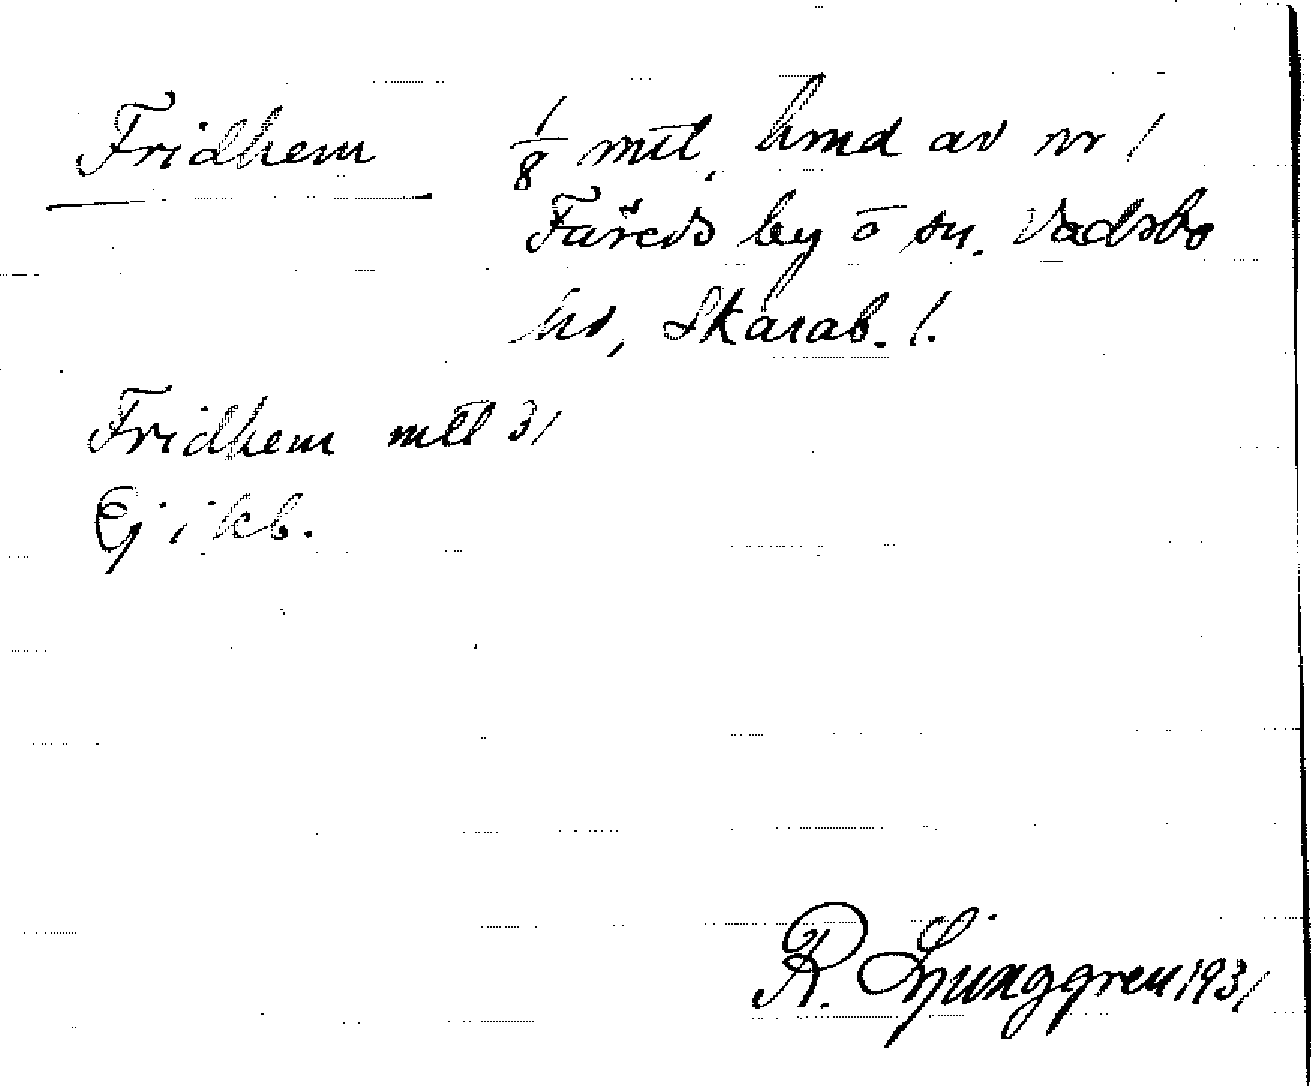 Fridhem 1/8 mtl. hmd av nr 1
Färeds by o sn. Vadsbo
hd, Skarab. l.
Fridhem mtl 31
Ej i kb.
R. Ljunggren 1931